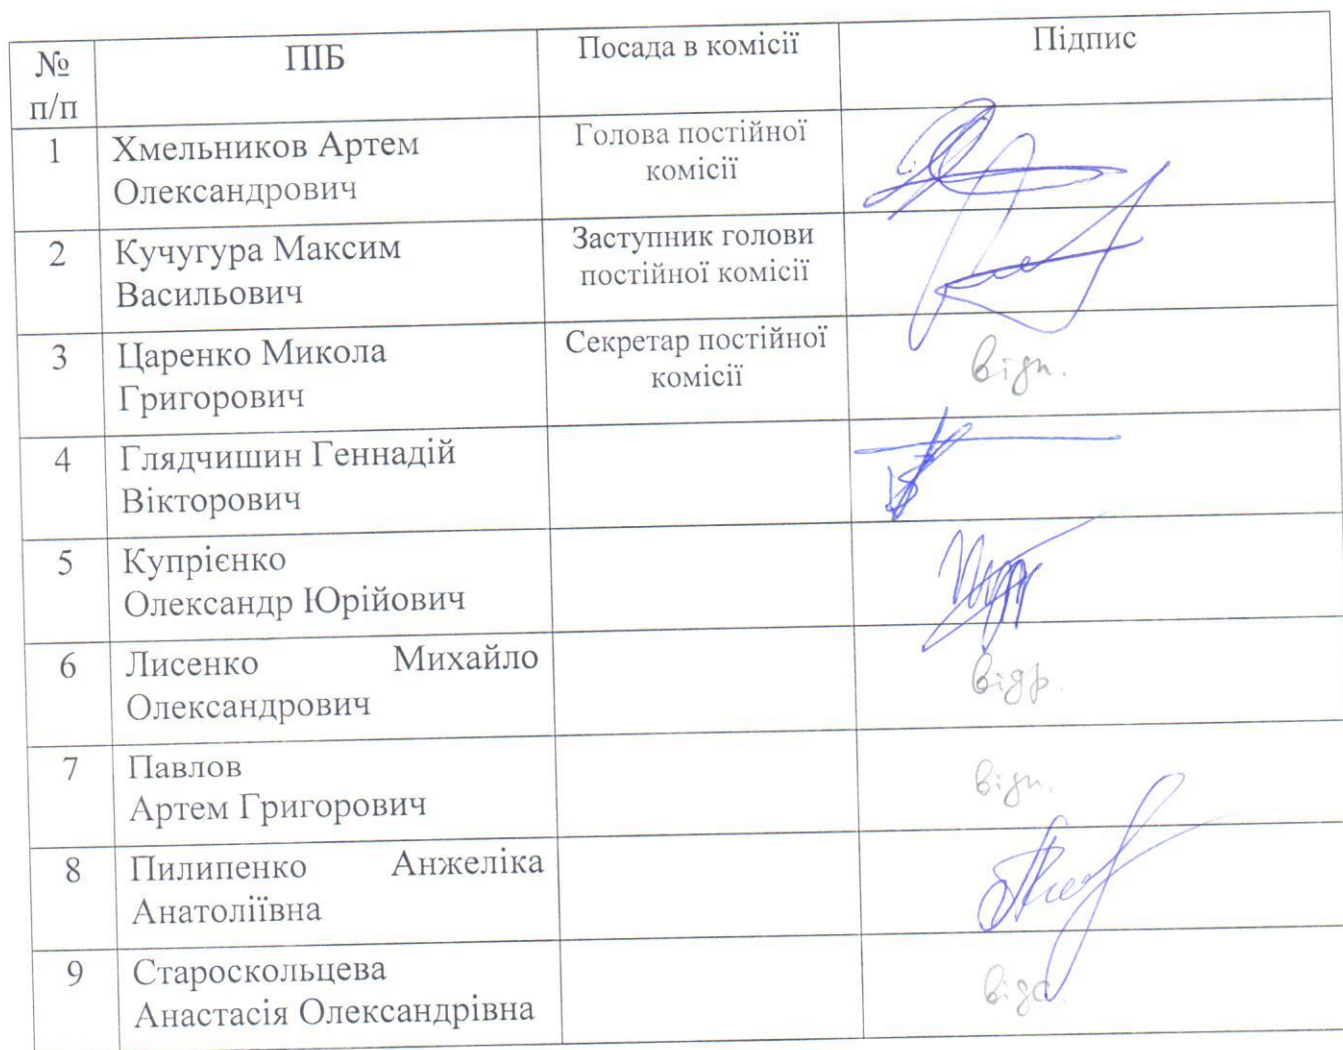 № п/п ПІБ Посада в комісії Підпис
1 Хмельников Артем Олександрович Голова постійної комісії
2 Кучугура Максим Васильович Заступник голови постійної комісії
3 Царенко Микола Григорович Секретар постійної комісії відп.
4 Глядчишин Геннадій Вікторович
5 Купрієнко Олександр Юрійович
6 Лисенко Михайло Олександрович відр.
7 Павлов Артем Григорович відп.
8 Пилипенко Анжеліка Анатоліївна
9 Староскольцева Анастасія Олександрівна